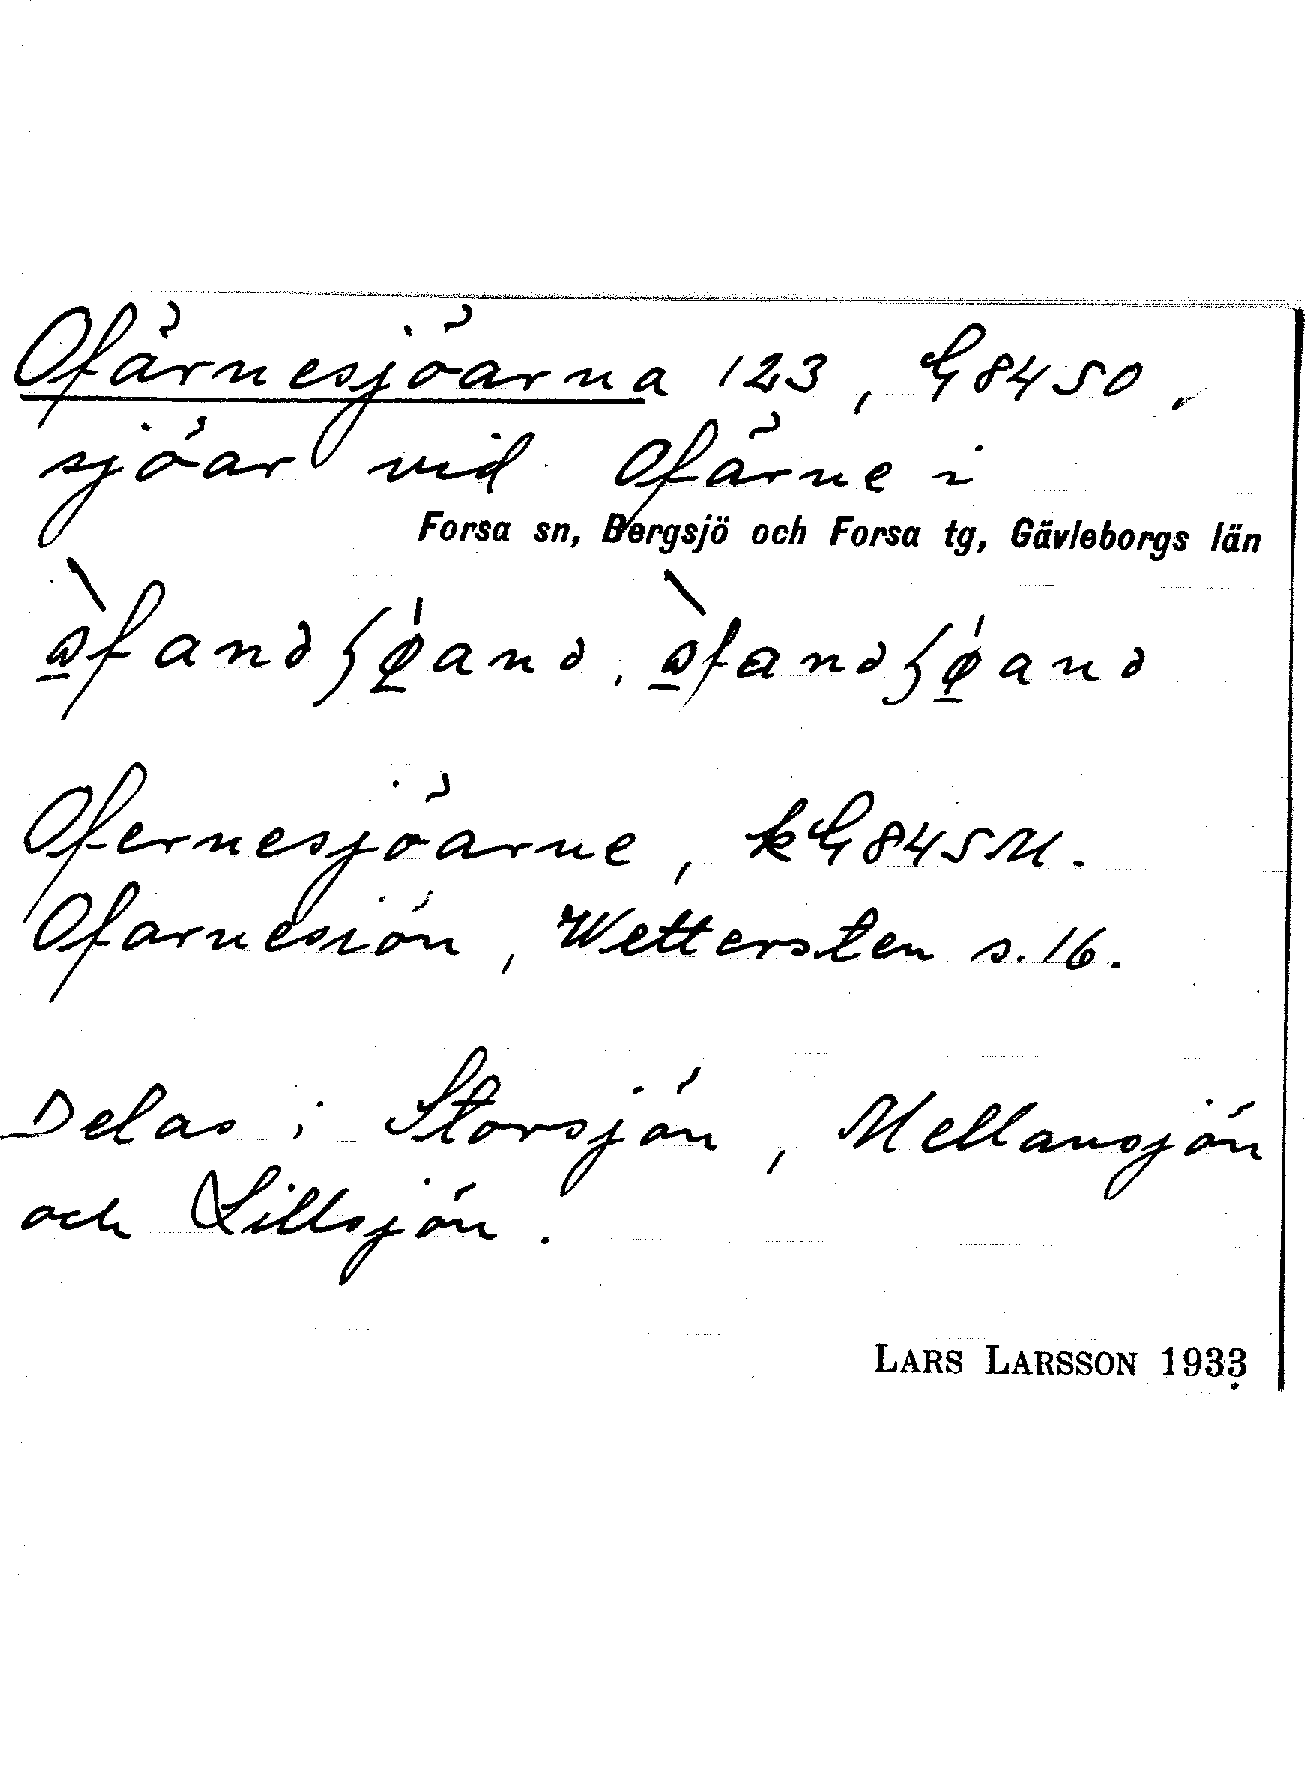 Ofärnesjöarna 123, G 84 SO,
sjöar vid Ofärne i
Forsa sn, Bergsjö och Forsa tg, Gävleborgs län
Ofernesjöarne, kG 84 SM.
Ofarnesiön, Wettersten s. 16.
Delas i Storsjön, Mellansjön
och Lillsjön.
LARS LARSSON 1933